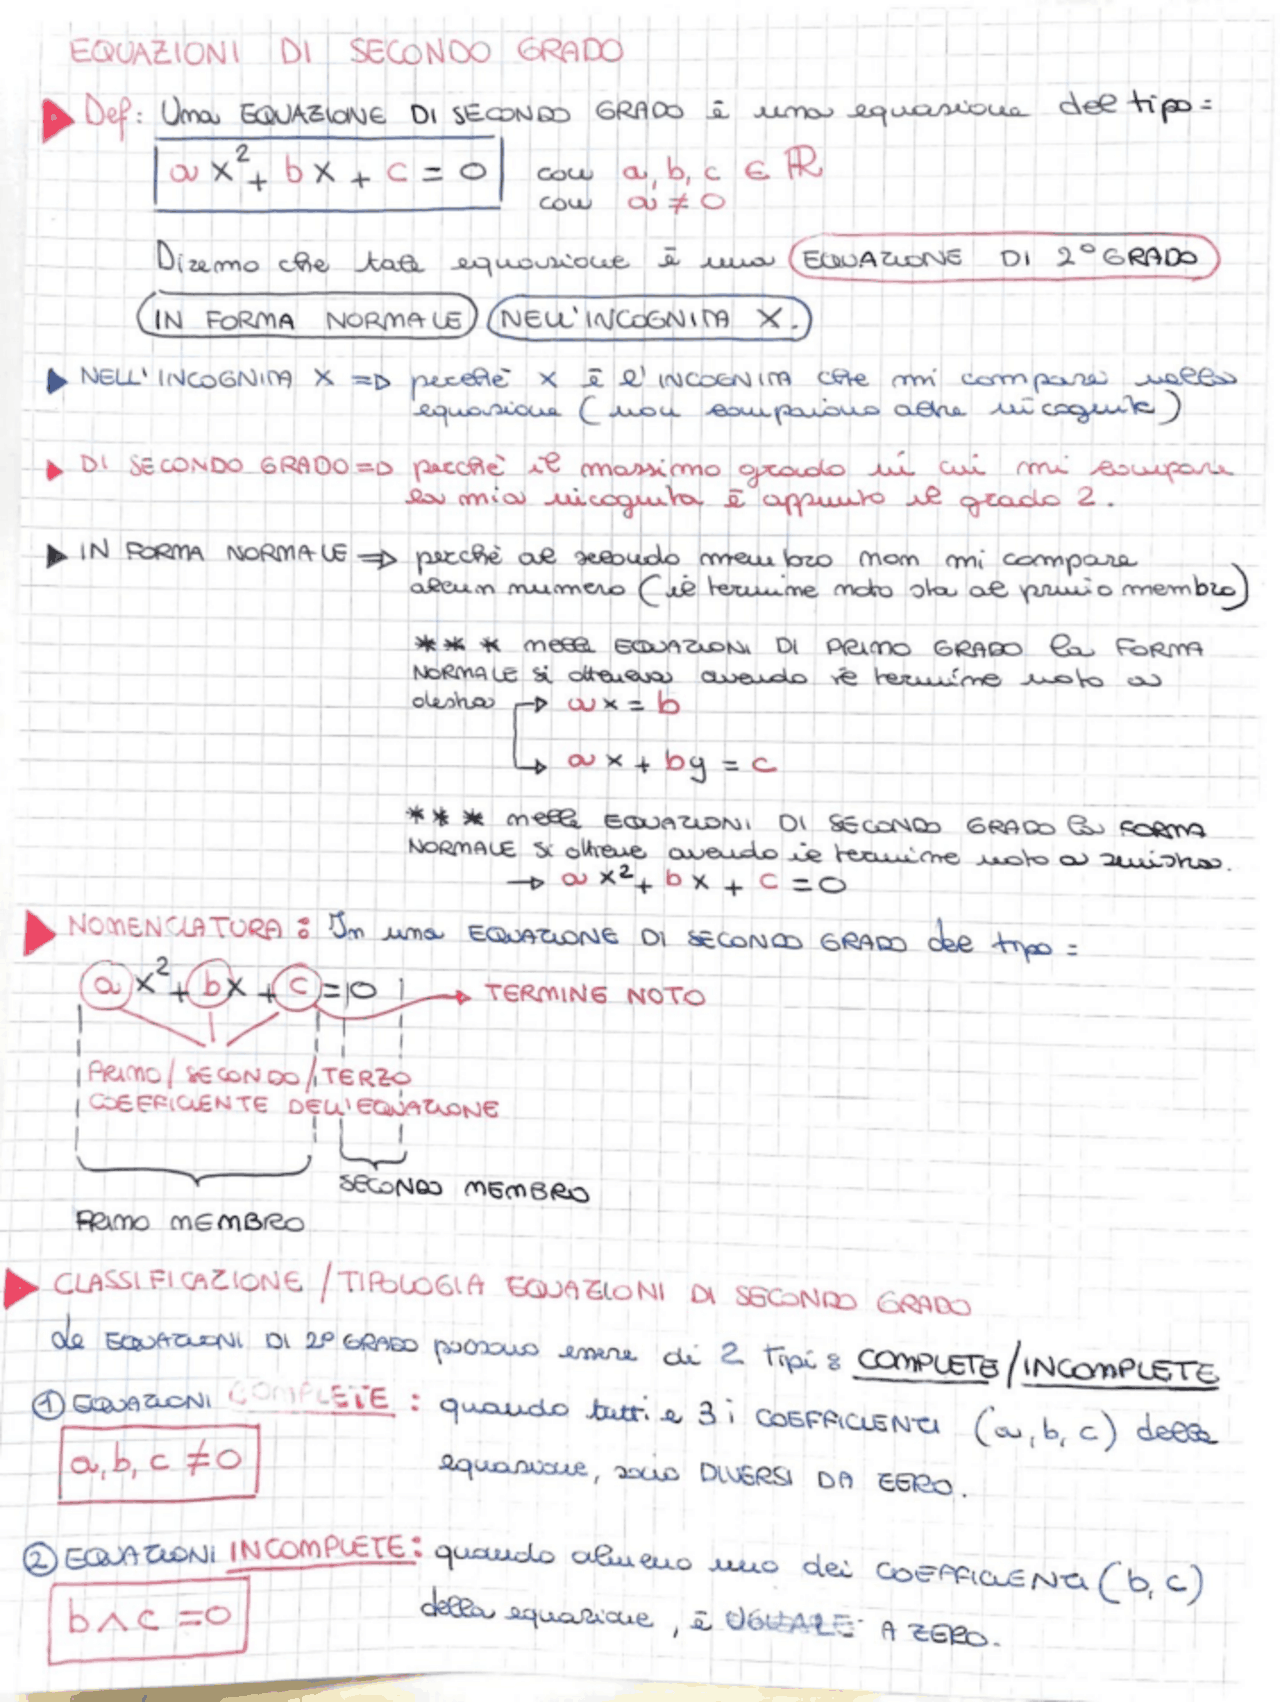 EQUAZIONI DI SECONDO GRADO
Def: Una EQUAZIONE DI SECONDO GRADO è una equazione del tipo:
ax² + bx + c = 0 con a, b, c ∈ ℝ
con a ≠ 0
Diremo che tale equazione è una EQUAZIONE DI 2° GRADO
IN FORMA NORMALE NELL'INCOGNITA X.
NELL'INCOGNITA X ⇒ perché x è l'INCOGNITA che mi compare nella
equazione (non compaiono altre incognite)
DI SECONDO GRADO ⇒ perché il massimo grado in cui mi compare
la mia incognita è appunto il grado 2.
IN FORMA NORMALE ⇒ perché al secondo membro non mi compare
alcun numero (il termine noto sta al primo membro)
*** nelle EQUAZIONI DI PRIMO GRADO la FORMA
NORMALE si otteneva avendo il termine noto a
destra → ax = b
→ ax + by = c
*** nelle EQUAZIONI DI SECONDO GRADO la FORMA
NORMALE si ottiene avendo il termine noto a sinistra.
→ ax² + bx + c = 0
NOMENCLATURA: In una EQUAZIONE DI SECONDO GRADO del tipo:
ax² + bx + c = 0 → TERMINE NOTO
PRIMO/SECONDO/TERZO
COEFFICIENTE DELL'EQUAZIONE
SECONDO MEMBRO
PRIMO MEMBRO
CLASSIFICAZIONE / TIPOLOGIA EQUAZIONI DI SECONDO GRADO
Le EQUAZIONI DI 2° GRADO possono essere di 2 tipi: COMPLETE/INCOMPLETE
① EQUAZIONI COMPLETE: quando tutti e 3 i COEFFICIENTI (a, b, c) della
a, b, c ≠ 0 equazione, sono DIVERSI DA ZERO.
② EQUAZIONI INCOMPLETE: quando almeno uno dei COEFFICIENTI (b, c)
b ∧ c = 0 della equazione, è UGUALE A ZERO.